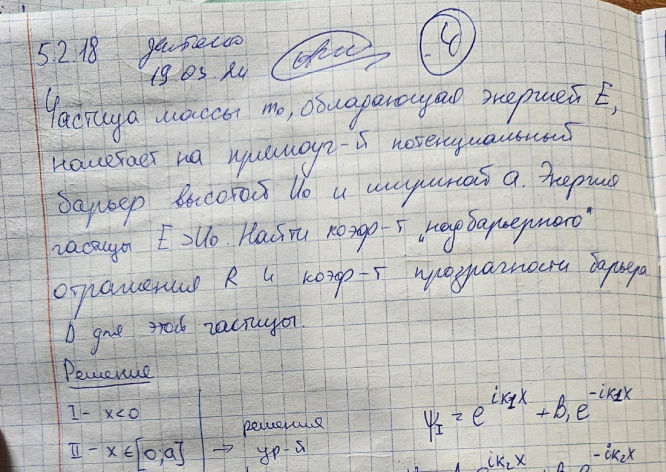 5.2.18
19.03.24
4
Частица массы m₀, обладающая энергией E,
налетает на прямоуг-й потенциальный
барьер высотой U₀ и шириной a. Энергия
частицы E>U₀. Найти коэф-т „надбарьерного"
отражения R и коэф-т прозрачности барьера
D для этой частицы.
Решение
I - x<0
II - x∈[0;a] → решения ур-й
ψ_I = e^{ik₁x} + B₁e^{-ik₁x}
e^{ik₂x} e^{-ik₂x}